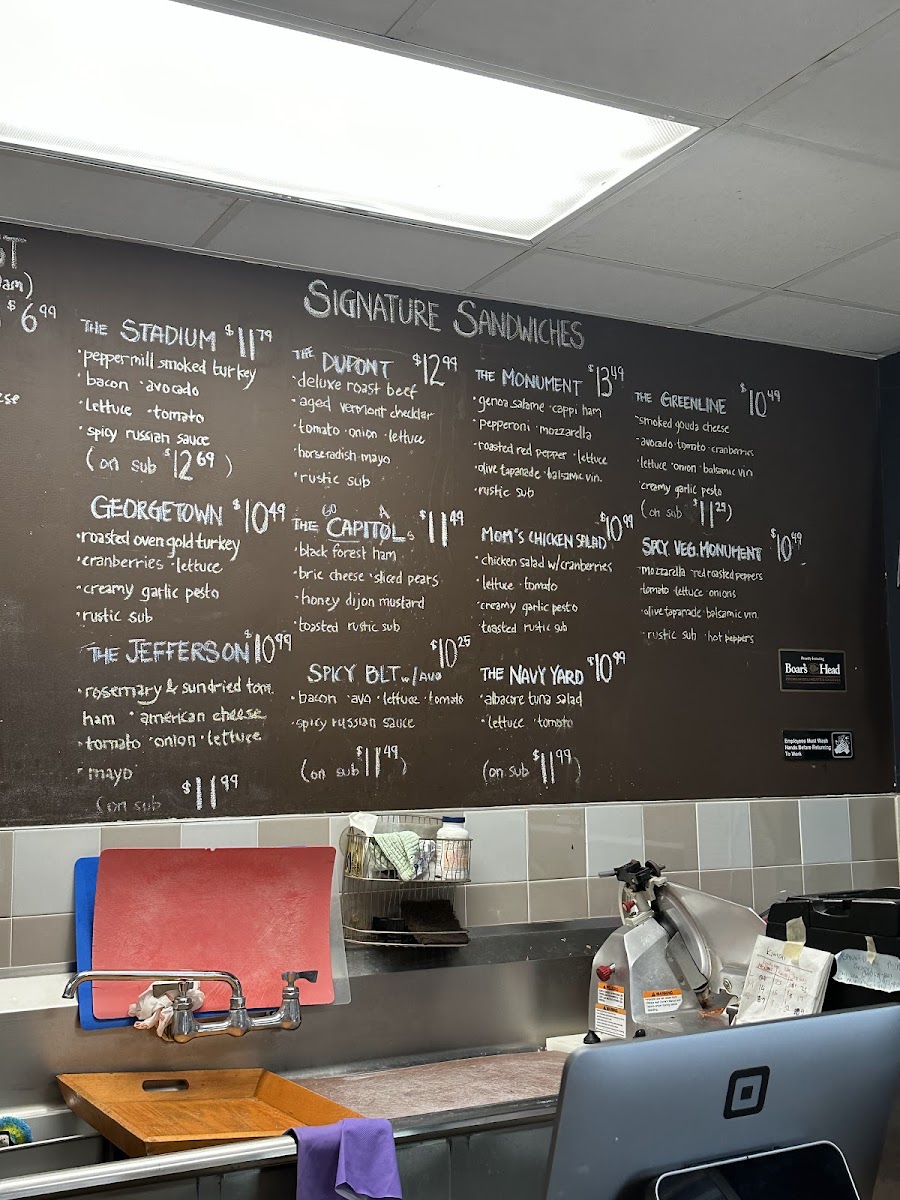 am)
$6.99
SIGNATURE SANDWICHES
THE STADIUM $11.79
·peppermill smoked turkey
·bacon ·avocado
·lettuce ·tomato
·spicy russian sauce
(on sub $12.69)
GEORGETOWN $10.49
·roasted oven gold turkey
·cranberries ·lettuce
·creamy garlic pesto
·rustic sub
THE JEFFERSON $10.99
·rosemary & sundried tom.
ham ·american cheese
·tomato ·onion ·lettuce
·mayo
(on sub $11.99
THE DUPONT $12.99
·deluxe roast beef
·aged vermont checklar
·tomato ·onion ·lettuce
·horseradish mayo
·rustic sub
GO
THE CAPITOL $11.49
·black forest ham
·brie cheese ·sliced pears
·honey dijon mustard
·toasted rustic sub
SPICY BLT w/AVO $10.25
·bacon ·avo ·lettuce ·tomato
·spicy russian sauce
(on sub $11.49)
THE MONUMENT $13.49
·genoa salame ·cappi ham
·pepperoni ·mozzarella
·roasted red pepper ·lettuce
·olive tapanade ·balsamic vin.
·rustic sub
MOM'S CHICKEN SALAD $10.99
·chicken salad w/cranberries
·lettuce ·tomato
·creamy garlic pesto
·toasted rustic sub
THE NAVY YARD $10.99
·albacore tuna salad
·lettuce ·tomato
(on sub $11.99)
THE GREENLINE $10.49
·smoked gouda cheese
·avocado ·tomato ·cranberries
·lettuce ·onion ·balsamic vin
·creamy garlic pesto
(on sub $11.29)
SPCY VEG. MONUMENT $10.49
·mozzarella ·red roasted peppers
·tomato ·lettuce ·onions
·olive tapanade ·balsamic vin.
·rustic sub ·hot peppers
Boar's Head
Employees Must Wash
Hands Before Returning
To Work
WARNING
WARNING